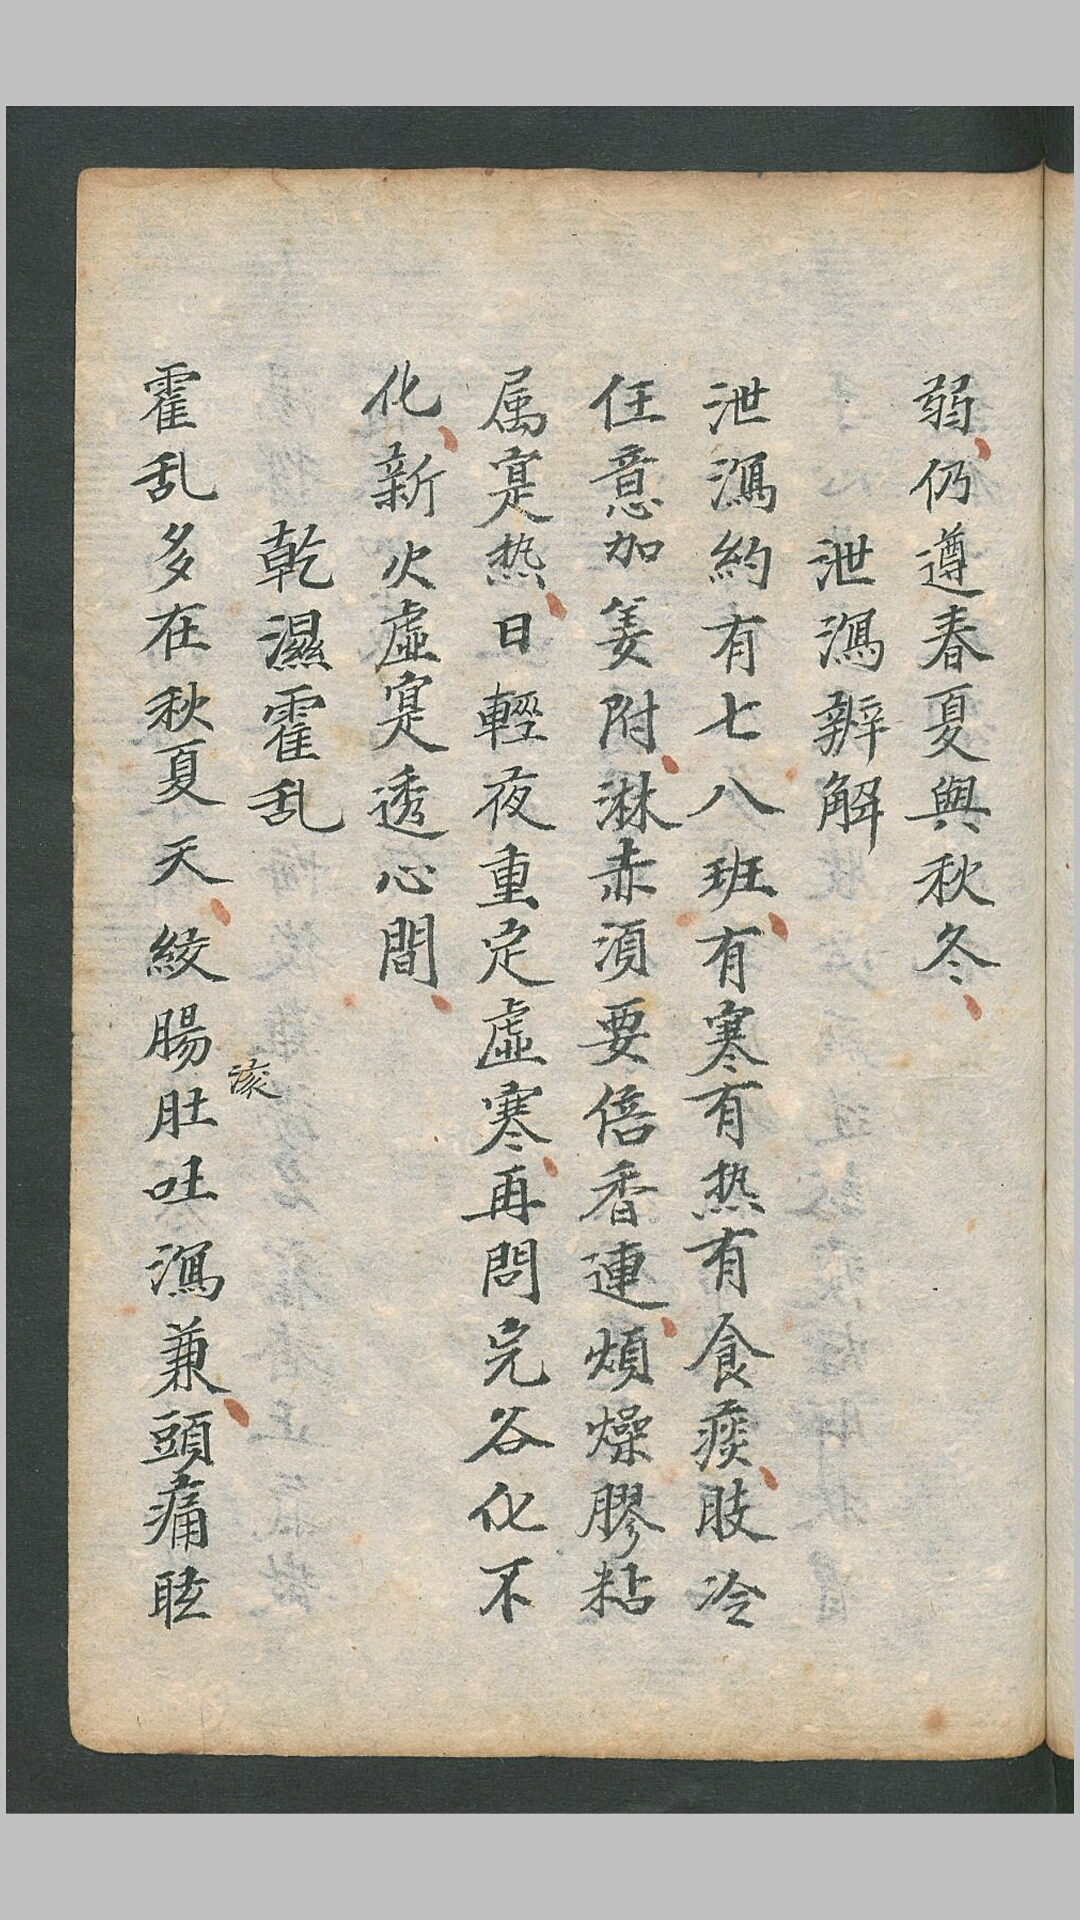 弱仍遵春夏與秋冬
泄瀉辨解
泄瀉約有七八班有寒有热有食痰肢冷
任意加姜附淋赤須要倍香連煩燥膠粘
属寔热日輕夜重定虛寒再問完谷化不
化新火虛寔透心間
乾濕霍乱
霍乱多在秋夏天絞腸肚吐瀉兼頭痛眩